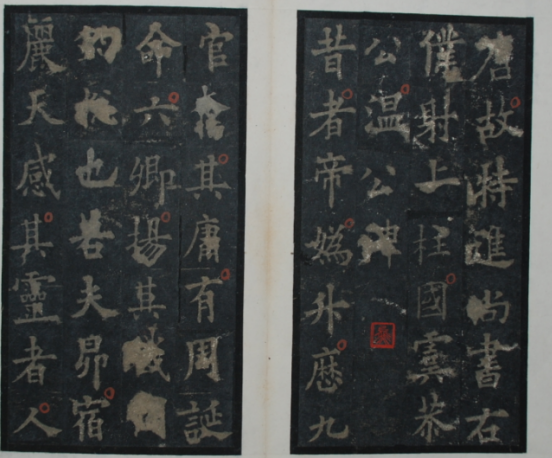 唐故特進尚書右
僕射上柱國虞恭
公温公碑
昔者帝媯升歷九
官其庸有周誕
命六卿揚其
也若夫昴宿
麗天感其靈者人